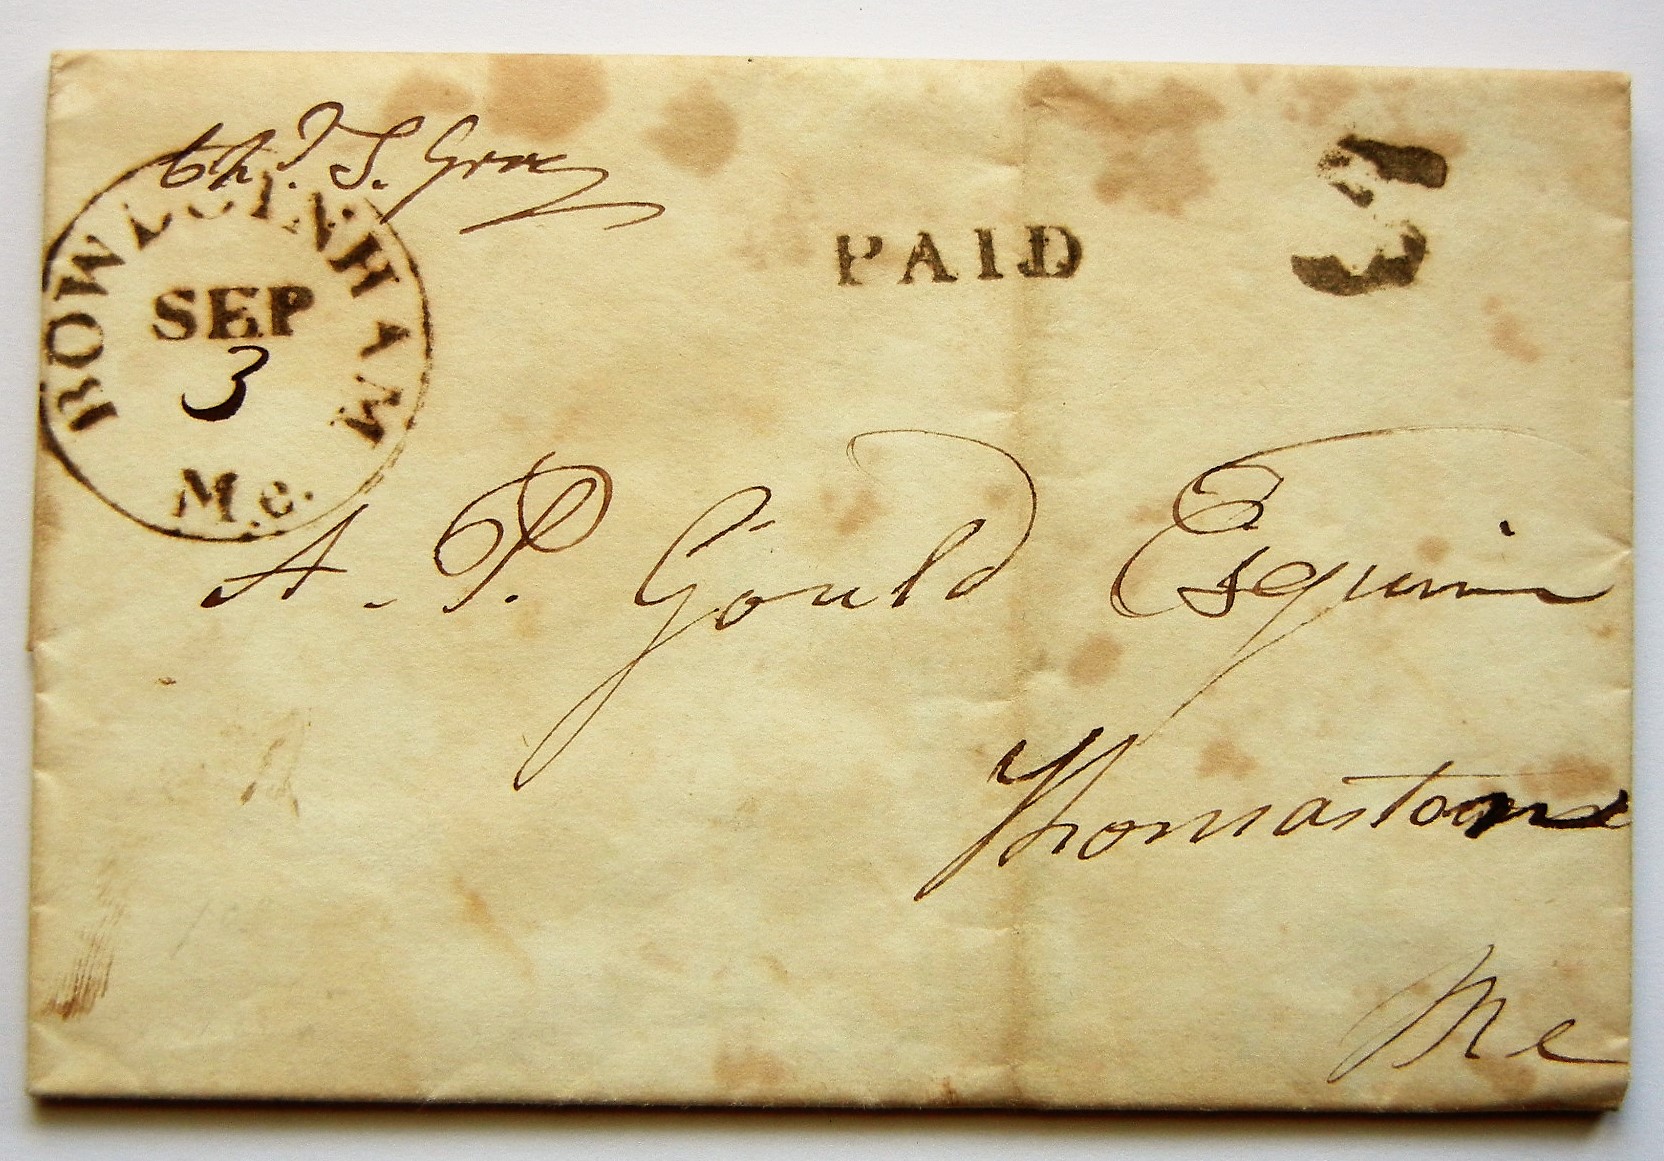 S. Gray
BOWDOINHAM
SEP
3
Me.
PAID
3
A. P. Gould Esquire
Thomastone
Me